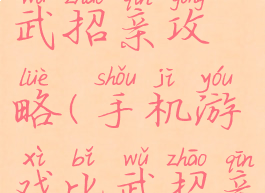 wǔ zhāo qīn gōng
武招亲攻
lüè shǒu jī yóu
略(手机游
xì bǐ wǔ zhāo qīn
戏比武招亲